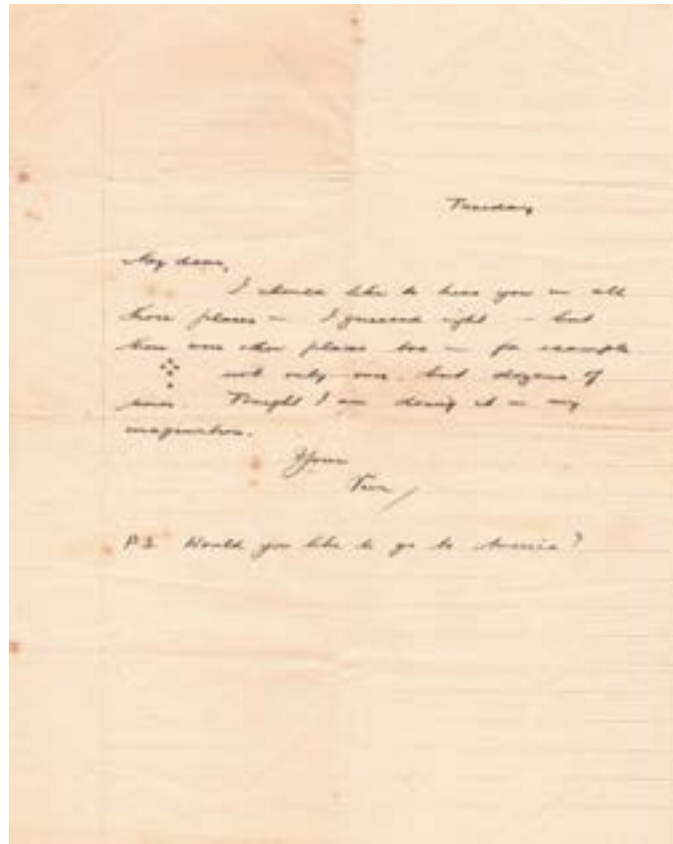 Tuesday
My dear,
I should like to kiss you in all
those places — I guessed right — but
there are other places too — for example
not only once, but dozens of
times. Tonight I am doing it in my
imagination.
Your
P.S. Would you like to go to America?